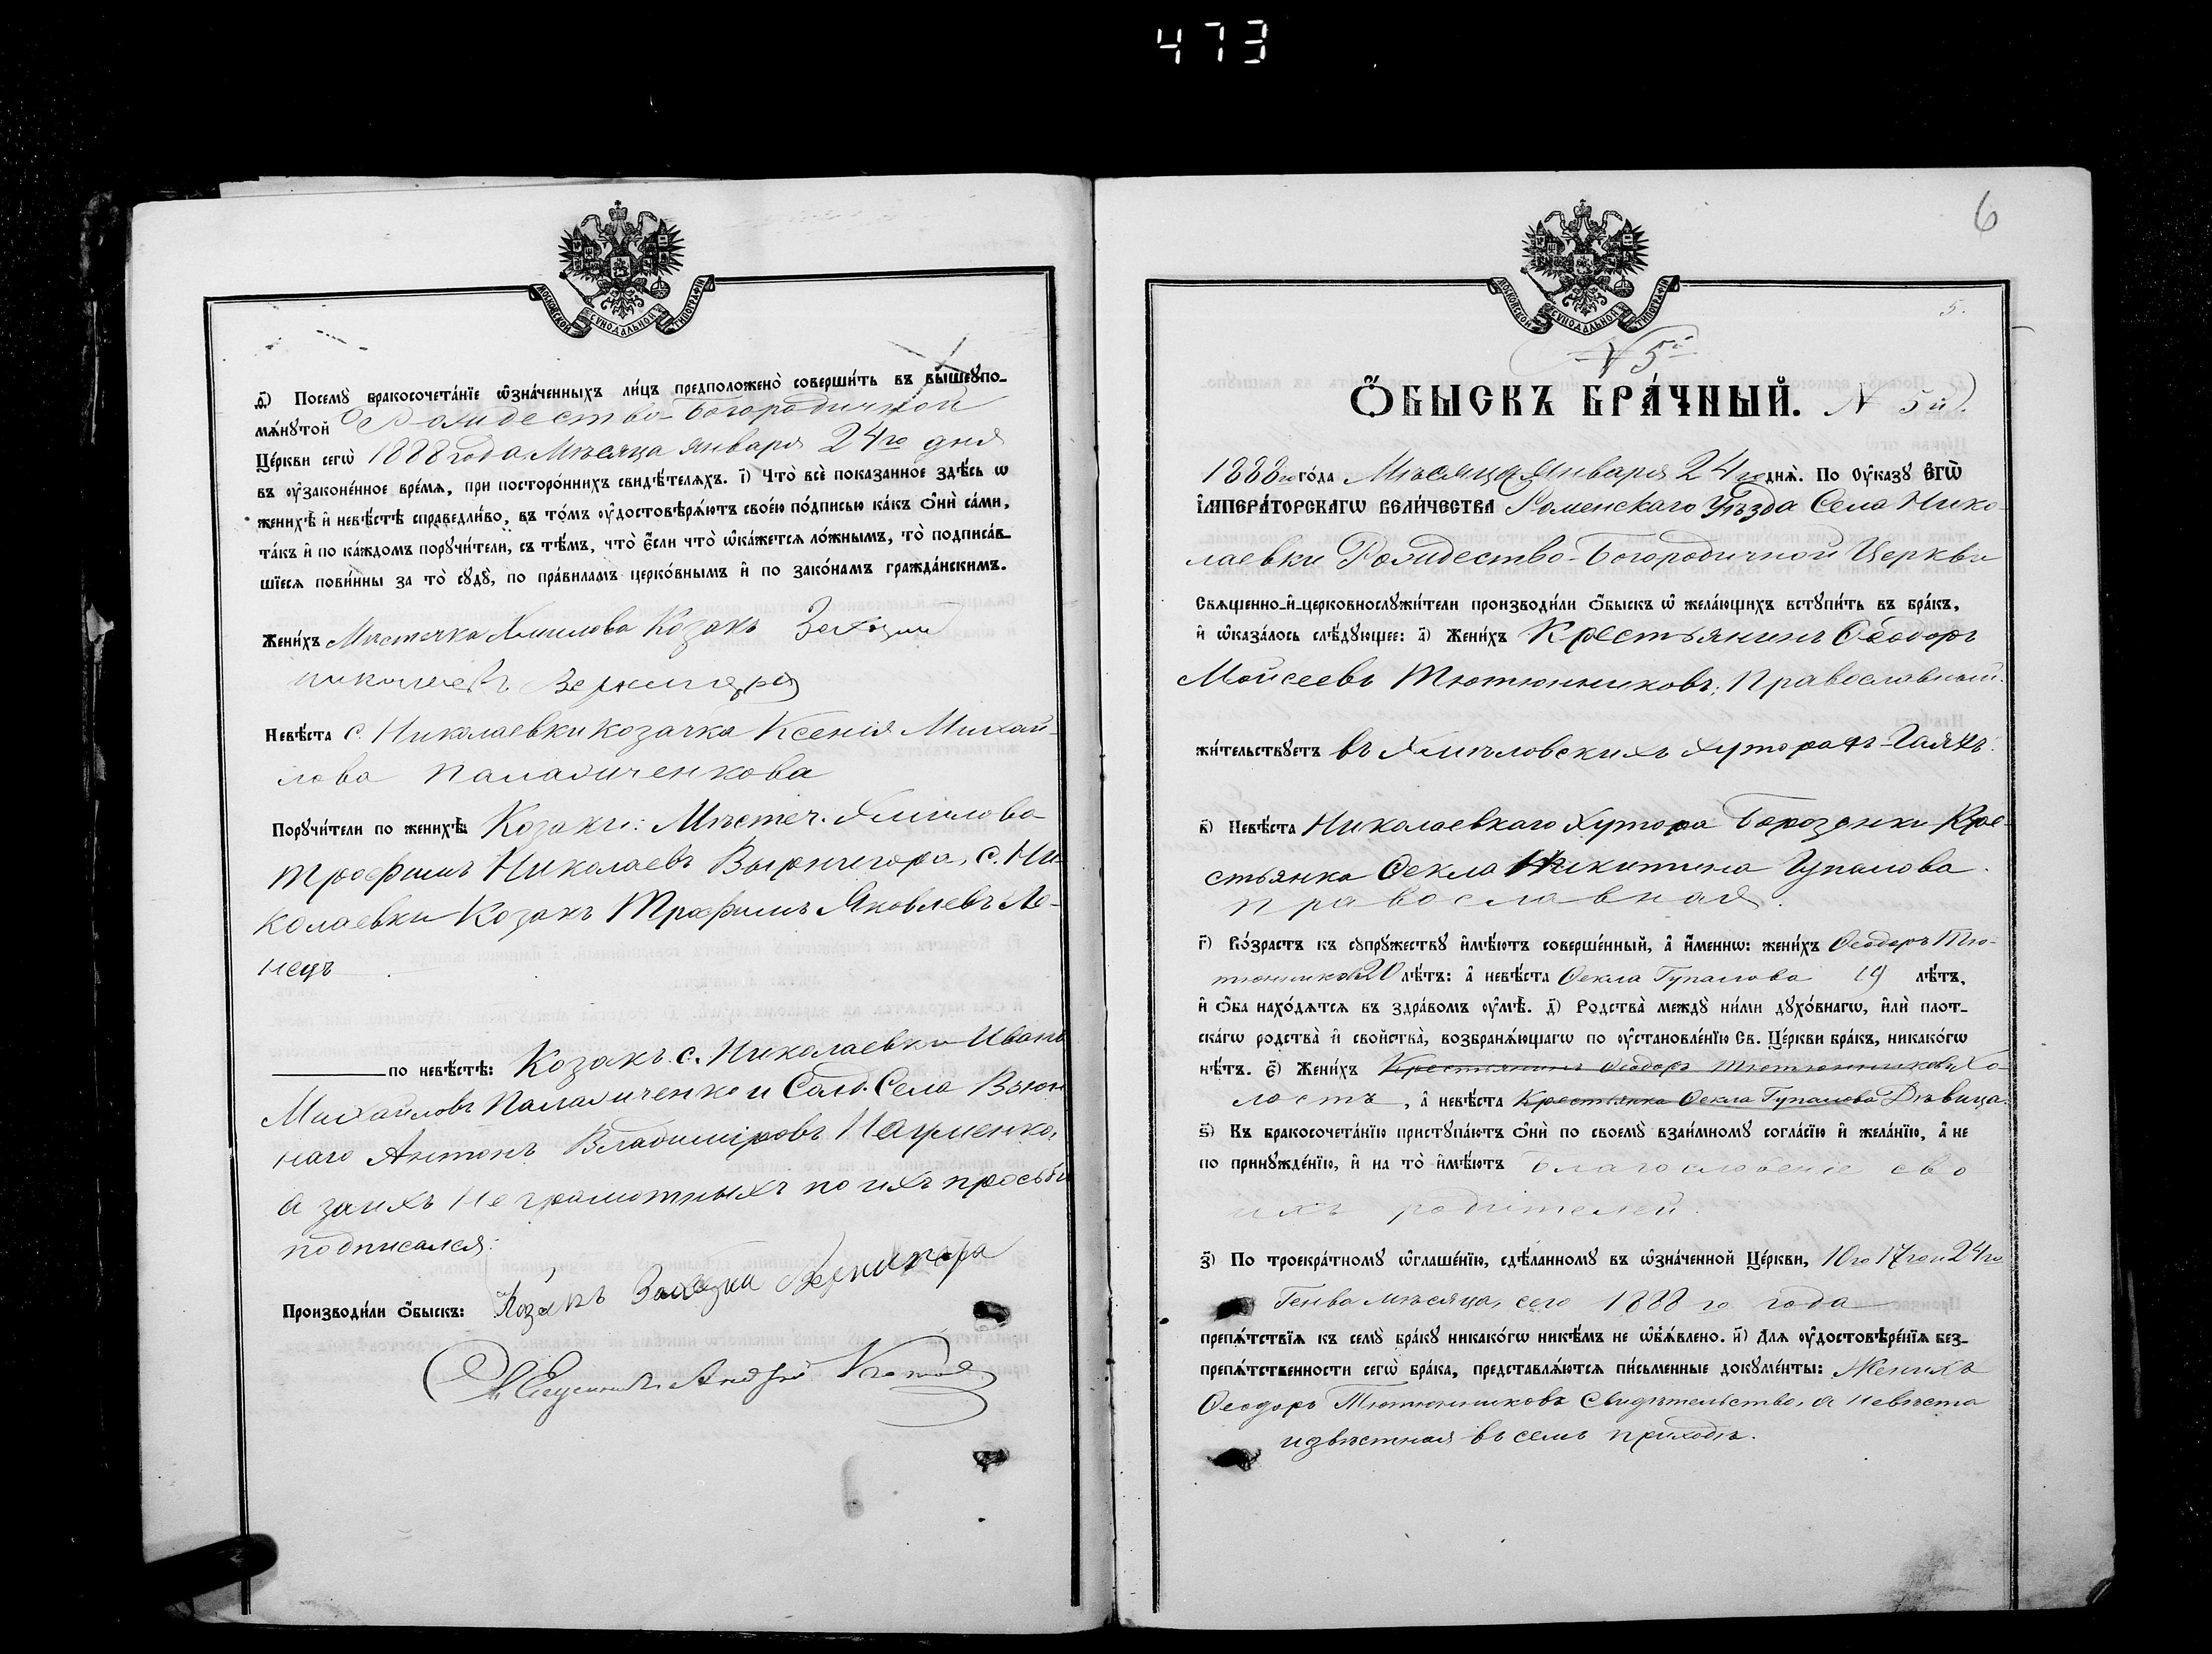 473
МОСКОВСКОЙ СѴНОДАЛЬНОЙ ТИПОГРАФІИ
д҃і) Посемꙋ̀ бракосочета́нїе ѡ҆зна́ченныхъ ли́цъ предположено̀ соверши́ть въ вышеꙋпо-
мѧ́нꙋтой Рождество-Богородичной
Це́ркви сегѡ̀ 1888 года Мѣсяца января 24го дня
въ оу҆законе́нное вре́мѧ, при посторо́ннихъ свидѣ́телѧхъ. і҃) Что̀ всѐ показанное здѣ́сь ѡ
женихѣ̀ и҆ невѣ́стѣ справедли́во, въ то́мъ оу҆достовѣрѧ́ютъ свое́ю по́дписью ка́къ ѻ҆нѝ са́ми,
та́къ и҆ по ка́ждомъ порꙋчи́тели, съ тѣ́мъ, что̀ є҆́сли что̀ ѡ҆ка́жетсѧ ло́жнымъ, то̀ подписа́в-
шїесѧ пови́нны за то̀ сꙋдꙋ̀, по пра́виламъ церко́внымъ и҆ по зако́намъ гражда́нскимъ.
Жени́хъ Мѣстечка Хмилова Козакъ
Николаевъ Вернигора
Невѣ́ста с. Николаевки козачка Ксенія Михай-
лова Палажченкова
Порꙋчи́тели по женихѣ̀: Козаки: Мѣстеч. Хмилова
Трофимъ Николаевъ Вырнигора, с. Ни-
колаевки Козакъ Трофимъ Яковлевъ Ло-
нецъ
по невѣ́стѣ: Козакъ с. Николаевки Иванъ
Михайловъ Палажченко и Солд. Села Вьюн
наго Антонъ Владиміровъ Науменко,
а за нихъ неграмотныхъ по ихъ просьбѣ
подписался:
Козакъ Вернигора
Производи́ли ѻ҆́быскъ:
Андрей
6
5.
МОСКОВСКОЙ СѴНОДАЛЬНОЙ ТИПОГРАФІИ
N 5й
Ѻ҆́БЫСКЪ БРА́ЧНЫЙ. N 5й).
1888го го́да Мѣсяца Января 24го днѧ̀. По оу҆казꙋ Є҆ГѠ̀
І҆МПЕРА́ТОРСКАГѠ ВЕЛИ́ЧЕСТВА Роменскаго Уѣзда Села Нико-
лаевки Рождество-Богородичной Церкви
Свѧщенно-и҆-церковнослꙋжи́тели производи́ли ѻ҆́быскъ ѡ҆ жела́ющихъ встꙋпи́ть въ бра́къ,
и҆ ѡ҆каза́лось слѣ́дꙋющее: а҃) Жени́хъ Крестьянинъ Ѳеодоръ
Мойсеевъ Тютюнниковъ; Православный.
жи́тельствꙋетъ въ Хмиловскихъ хуторахъ-Гаяхъ.
в҃) Невѣ́ста Николаевкаго Хутора Борозенки Кре-
стьянка Ѳекла Никитина Гупалова
православная.
г҃) Во́зрастъ къ сꙋпрꙋ́жествꙋ и҆мѣ́ютъ соверше́нный, а҆ и҆́меннѡ: жени́хъ Ѳеодоръ Тю-
тюнниковъ 20 лѣ́тъ: а҆ невѣ́ста Ѳекла Гупалова 19 лѣ́тъ,
и҆ ѻ҆́ба нахо́дѧтсѧ въ здра́вомъ оу҆мѣ̀. д҃) Родства̀ междꙋ̀ ни́ми дꙋхо́внагѡ, и҆лѝ плот-
ска́гѡ родства̀ и҆ свойства̀, возбранѧ́ющагѡ по оу҆становле́нїю Св. Це́ркви бра́къ, никако́гѡ
нѣ́тъ. є҃) Жени́хъ Крестьянинъ Ѳеодоръ Тютюнниковъ Хо-
лостъ, а҆ невѣ́ста Крестьянка Ѳекла Гупалова Дѣвица.
ѕ҃) Къ бракосочета́нїю пристꙋпа́ютъ ѻ҆нѝ по своемꙋ̀ взаи́мномꙋ согла́сїю и҆ жела́нїю, а҆ не
по принꙋжде́нїю, и҆ на то̀ и҆мѣ́ютъ Благословеніе сво
ихъ родителей.
з҃) По троекра́тномꙋ ѡ҆глаше́нїю, сдѣ́ланномꙋ въ ѡ҆зна́ченной Це́ркви, 10го 17го и 24го
Генва мѣсяца, сего 1888го года
препѧ́тствїѧ къ семꙋ̀ бра́кꙋ никако́гѡ никѣ́мъ не ѡ҆б̾ѧ́влено. и҃) Длѧ оу҆достовѣре́нїѧ без-
препѧ́тственности сегѡ̀ бра́ка, представлѧ́ютсѧ пи́сьменные докꙋме́нты: Женихъ
Ѳеодоръ Тютюнниковъ Свидѣтельство, а невѣста
извѣстная въ семъ приходѣ.